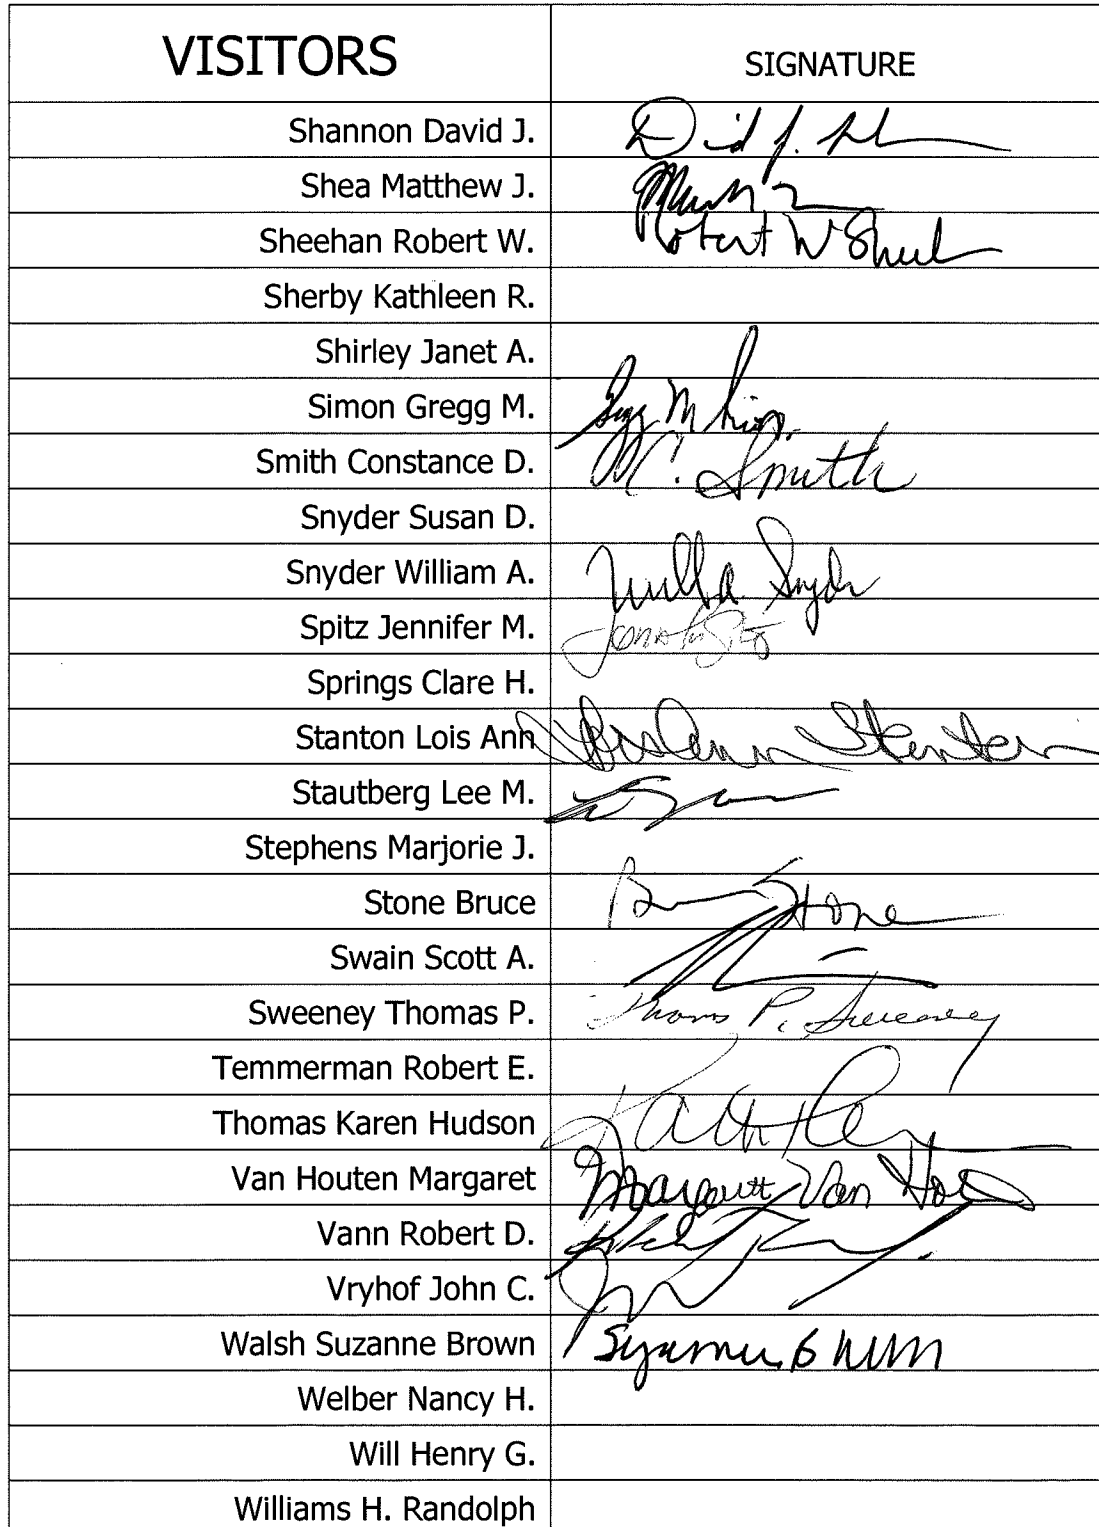 VISITORS SIGNATURE
Shannon David J.
Shea Matthew J.
Sheehan Robert W. Robert W
Sherby Kathleen R.
Shirley Janet A.
Simon Gregg M. M
Smith Constance D. C. Smith
Snyder Susan D.
Snyder William A. Snyder
Spitz Jennifer M.
Springs Clare H.
Stanton Lois Ann Lois Ann Stanton
Stautberg Lee M.
Stephens Marjorie J.
Stone Bruce Stone
Swain Scott A.
Sweeney Thomas P. Thomas P. Sweeney
Temmerman Robert E.
Thomas Karen Hudson
Van Houten Margaret Margaret Van
Vann Robert D.
Vryhof John C.
Walsh Suzanne Brown
Welber Nancy H.
Will Henry G.
Williams H. Randolph